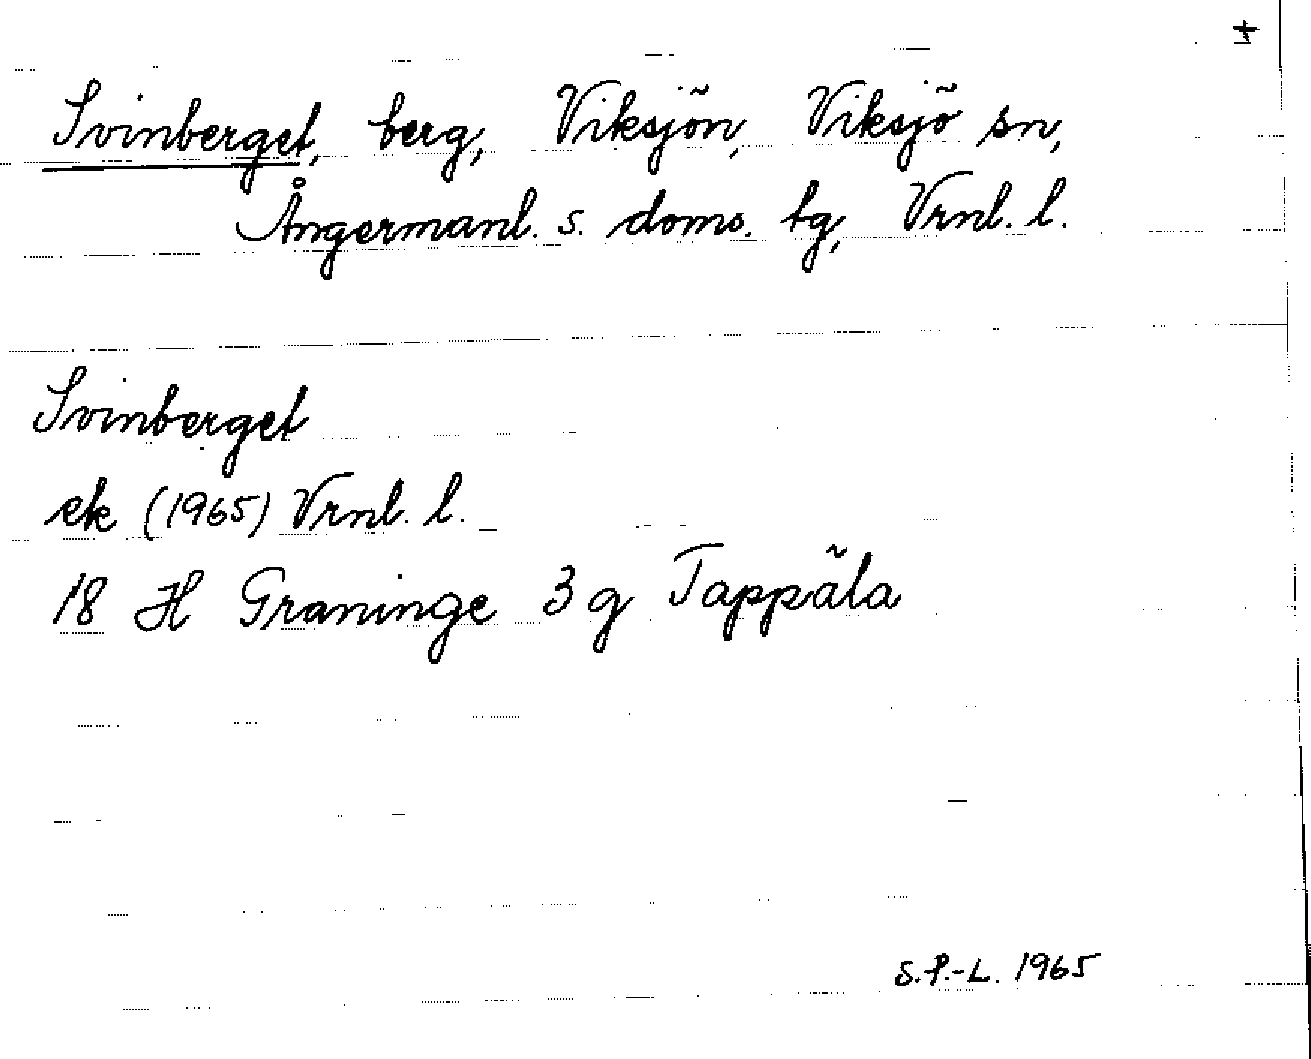 Svinberget, berg, Viksjön, Viksjö sn,
Ångermanl. s. doms. tg, Vrnl. l.
Svinberget
ek (1965) Vrnl. l.
18 H Graninge 3 g Tappäla
S.P.-L. 1965